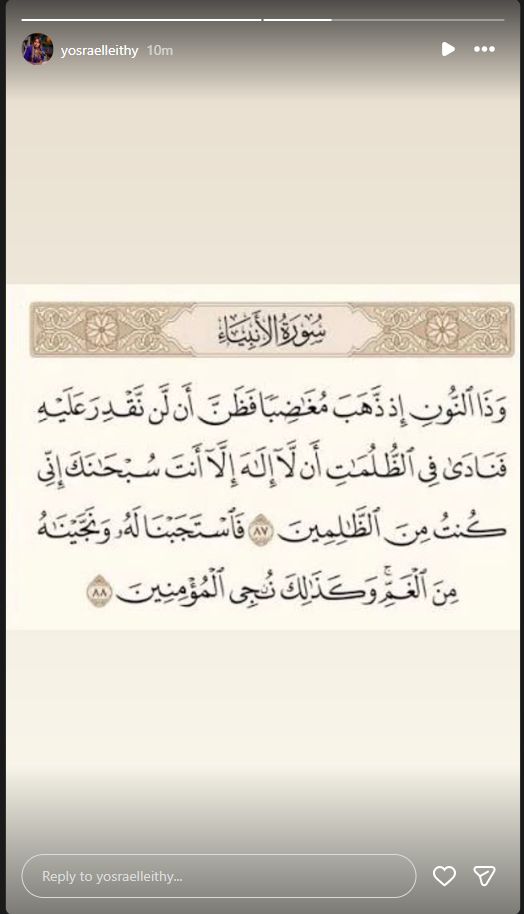 yosraelleithy 10m
سُورَةُ الأَنبِيَاءِ
وَذَا ٱلنُّونِ إِذ ذَّهَبَ مُغَٰضِبًا فَظَنَّ أَن لَّن نَّقۡدِرَ عَلَيۡهِ
فَنَادَىٰ فِي ٱلظُّلُمَٰتِ أَن لَّآ إِلَٰهَ إِلَّآ أَنتَ سُبۡحَٰنَكَ إِنِّي
كُنتُ مِنَ ٱلظَّٰلِمِينَ ٨٧ فَٱسۡتَجَبۡنَا لَهُۥ وَنَجَّيۡنَٰهُ
مِنَ ٱلۡغَمِّۚ وَكَذَٰلِكَ نُـۨجِي ٱلۡمُؤۡمِنِينَ ٨٨
Reply to yosraelleithy...